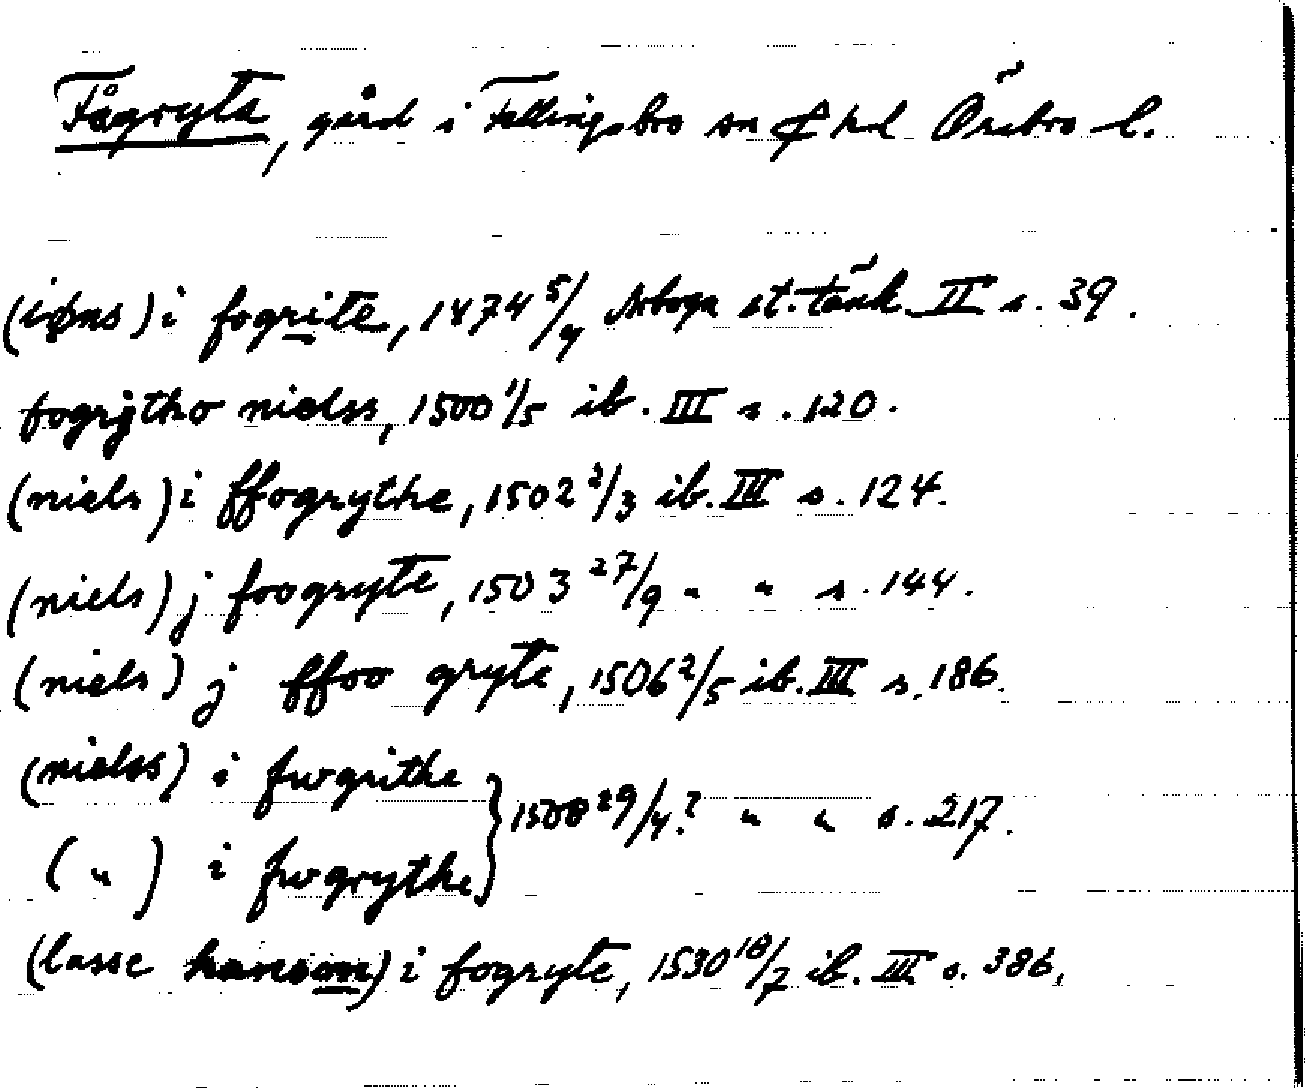 Fågryta, gård i Fellingsbro sn & hd Örebro l.
(iøns) i fogrite, 1474 5/4 Arboga st. tänk. II s. 39.
fogrÿtho nielss, 1500 1/5 ib. III s. 120.
(niels) i ffogrythe, 1502 2/3 ib. III s. 124.
(niels) j foogryte, 1503 27/9 " " s. 144.
(niels) j ffoo gryte, 1506 2/5 ib. III s. 186.
(nielss) i fwgrithe
(") i fwgrythe } 1508 29/4? " " s. 217.
(lasse hanson) i fogryte, 1530 18/7 ib. III s. 386.